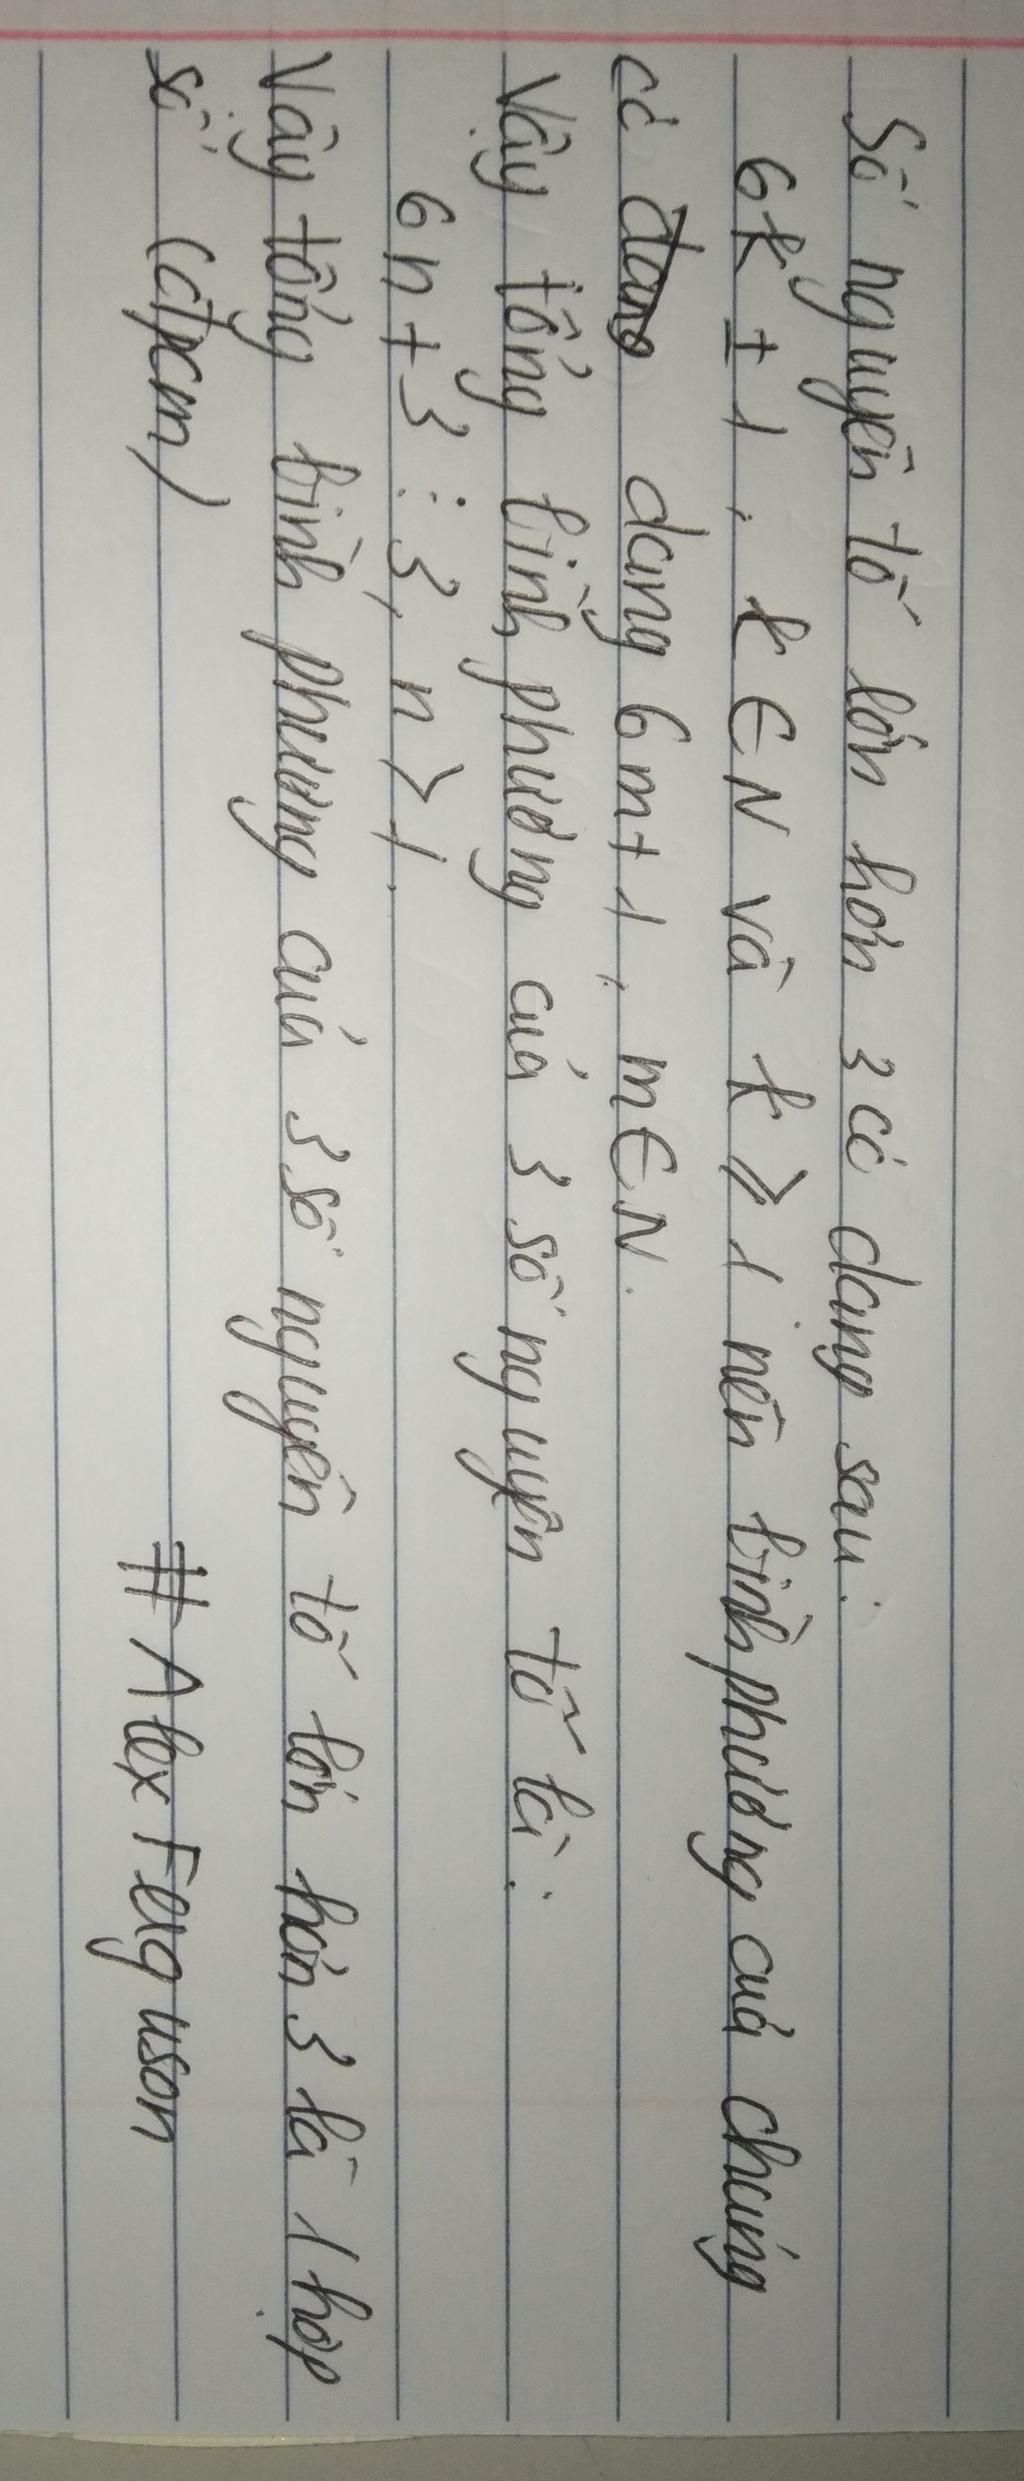 Số nguyên tố lớn hơn 3 có dạng sau:
6k ± 1, k ∈ N và k ⩾ 1 nên bình phương của chúng
có dạng 6m + 1, m ∈ N.
Vậy tổng bình phương của 3 số nguyên tố là:
6n + 3 ⋮ 3, n > 1.
Vậy tổng bình phương của 3 số nguyên tố lớn hơn 3 là 1 hợp
số (đpcm)
# Alex Feguson